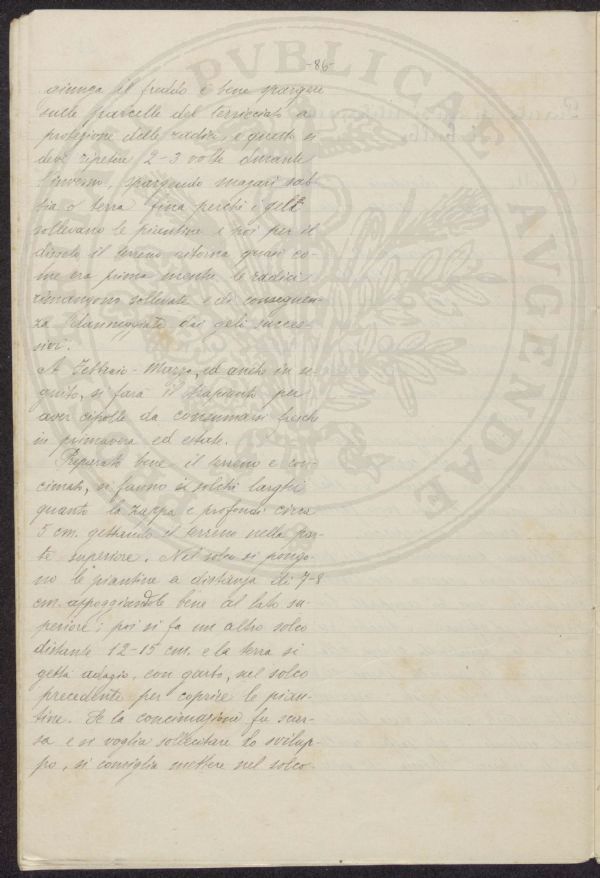 -86-
giunga il freddo è bene spargere
sulle parcelle del terricciato a
protezione delle radici e questo si
deve ripetere 2-3 volte durante
l'inverno, spargendo magari sab-
bia o terra fina perchè i geli
sollevano le piantine e poi per il
disgelo il terreno ritorna quasi co-
me era prima mentre le radici
rimangono sollevate e di conseguen-
za danneggiate dai geli succes-
sivi.
A Febbraio-Marzo, ed anche in se-
guito, si farà il trapianto per
aver cipolle da consumarsi fresche
in primavera ed estate.
Preparato bene il terreno e con-
cimato, si fanno i solchi larghi
quanto la zappa e profondi circa
5 cm. gettando il terreno nella par-
te superiore. Nel solco si pongo-
no le piantine a distanza di 7-8
cm. appoggiandole bene al lato su-
periore; poi si fa un altro solco
distante 12-15 cm. e la terra si
getta adagio, con garbo, nel solco
precedente per coprire le pian-
tine. Se la concimazione fu scar-
sa e si voglia sollecitare lo svilup-
po, si consiglia mettere nel solco
PVBLICAE
AVGENDAE